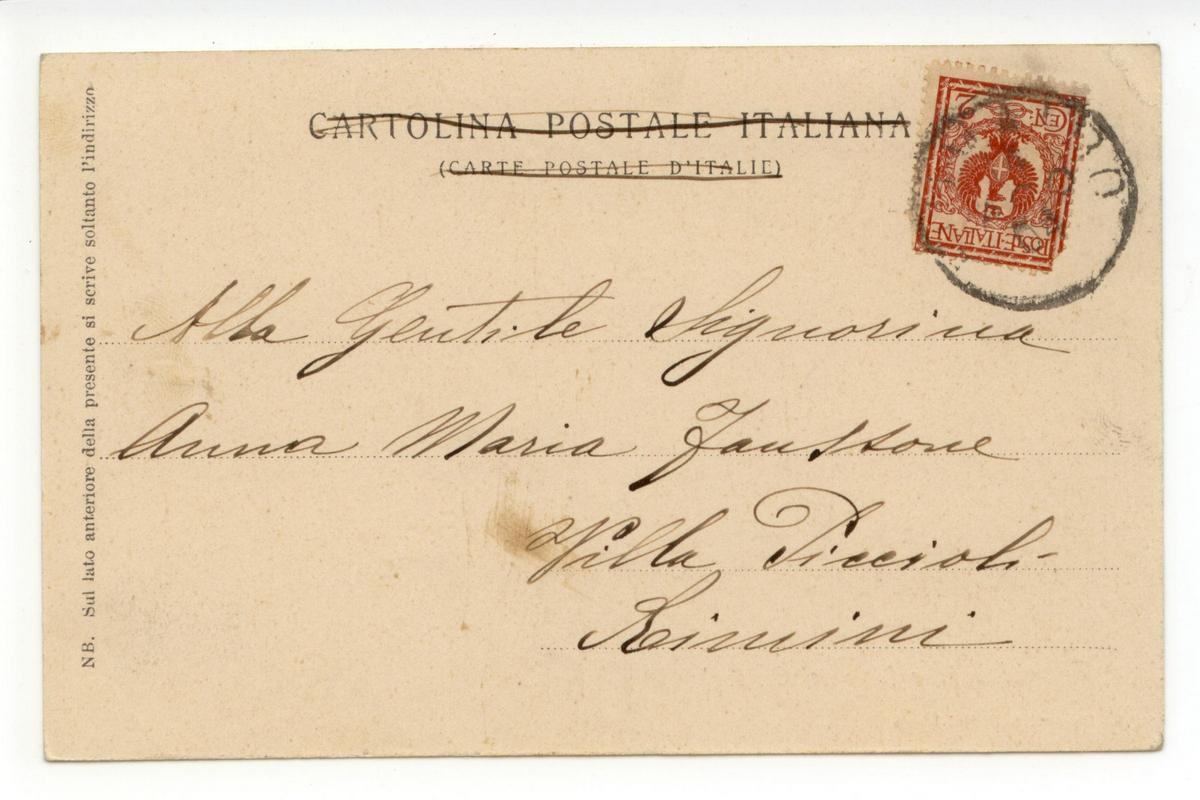 CARTOLINA POSTALE ITALIANA
(CARTE POSTALE D'ITALIE)
CEN: 2
POSTE·ITALIANE
Alla Gentile Signorina
Anna Maria Faussone
Villa Piccioli
Rimini
NB. Sul lato anteriore della presente si scrive soltanto l'indirizzo